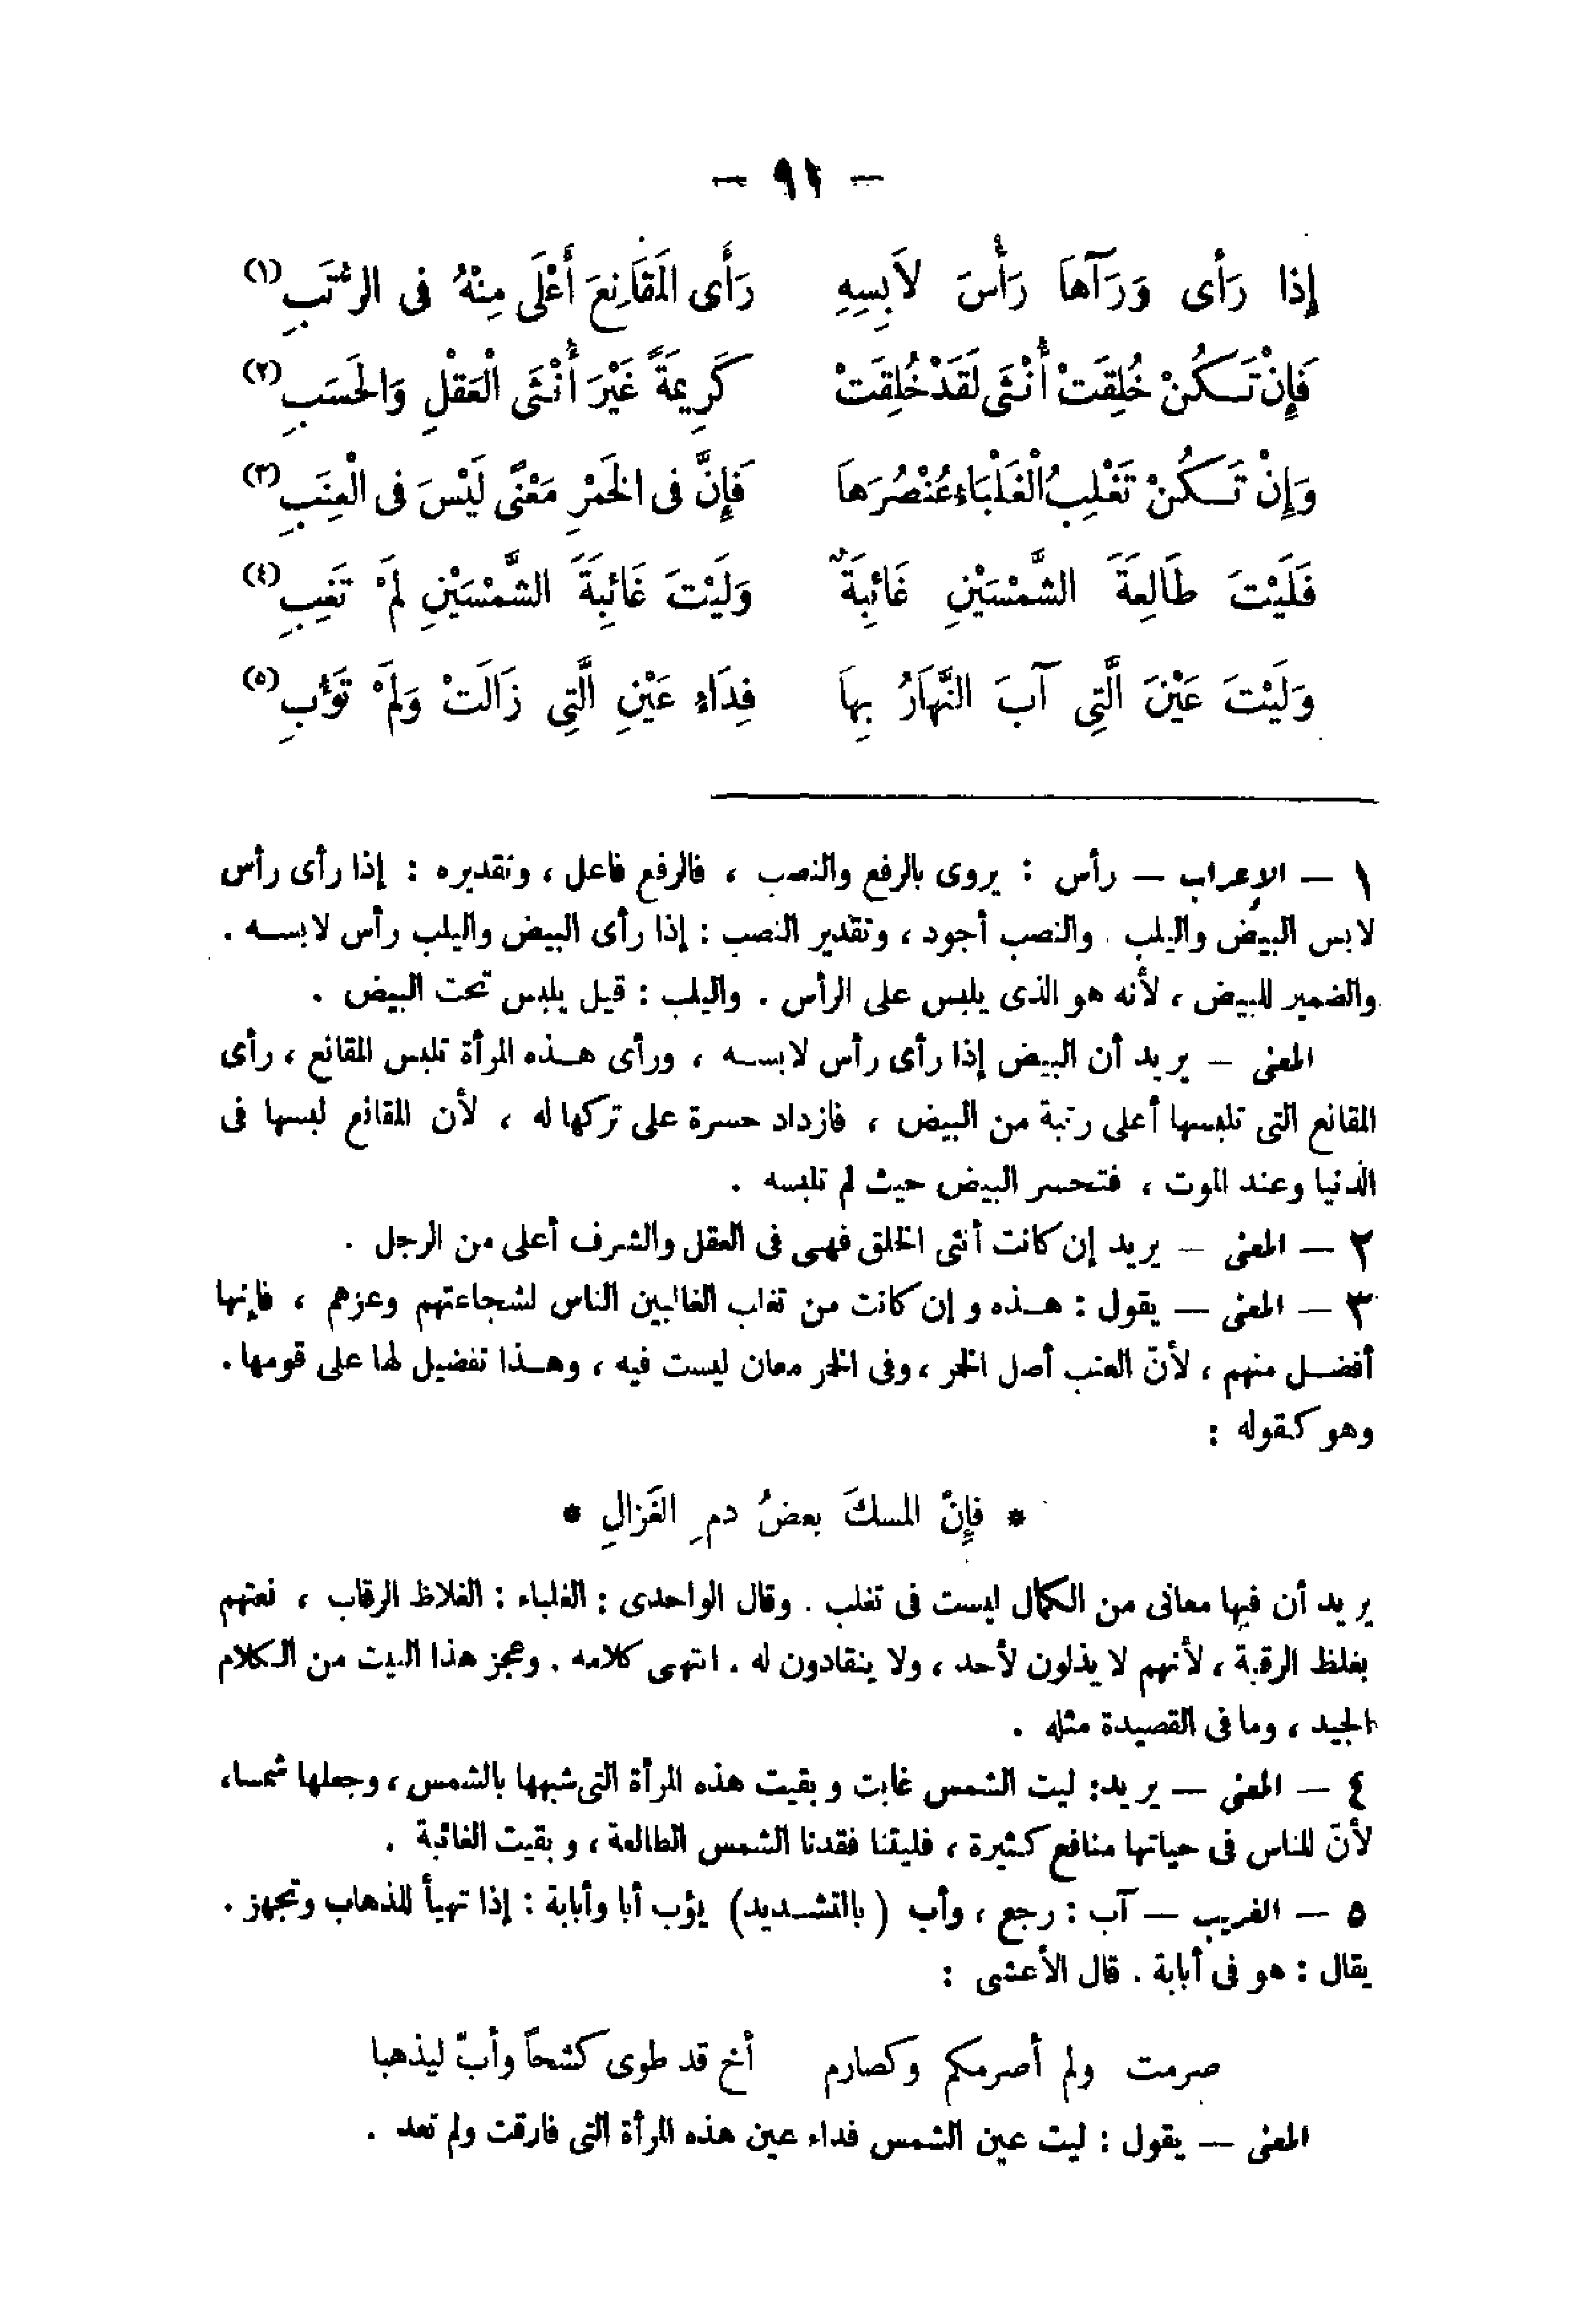 — ٩١ —
إِذا رَأى وَرَآهاَ رَأْسُ لاَبِسِهِ رَأَى المَقاَنِعَ أَعْلَى مِنْهُ فى الرُّتَبِ (١)
فَإِنْ تَكُنْ خُلِقَتْ أُنْثَى لَقَدْ خُلِقَتْ كَرِيمَةً غَيْرَ أُنْثَى الْعَقْلِ وَالحَسَبِ (٢)
وَإِنْ تَكُنْ تَغْلِبُ الْغَلْبَاءِ عُنْصُرَهاَ فَإِنَّ فى الخَمْرِ مَعْنًى لَيْسَ فى الْعِنَبِ (٣)
فَلَيْتَ طَالِعَةَ الشَّمْسَيْنِ غَائِبَةٌ وَلَيْتَ غَائِبَةَ الشَّمْسَيْنِ لَمْ تَغِبِ (٤)
وَلَيْتَ عَيْنَ الَّتِى آبَ النَّهَارُ بِهاَ فِدَاءِ عَيْنِ الَّتِى زَالَتْ وَلَمْ تَؤُبِ (٥)
١ — الإعراب — رأس : يروى بالرفع والنصب ، فالرفع فاعل ، وتقديره : إذا رأى رأس
لابس البيض واليلب . والنصب أجود ، وتقدير النصب : إذا رأى البيض واليلب رأس لابسه .
والضمير للبيض ، لأنه هو الذى يلبس على الرأس . واليلب : قيل يلبس تحت البيض .
المعنى — يريد أن البيض إذا رأى رأس لابسه ، ورأى هذه المرأة تلبس المقانع ، رأى
المقانع التى تلبسها أعلى رتبة من البيض ، فازداد حسرة على تركها له ، لأن المقانع لبسها فى
الدنيا وعند الموت ، فتحسر البيض حيث لم تلبسه .
٢ — المعنى — يريد إن كانت أنثى الخلق فهى فى العقل والشرف أعلى من الرجل .
٣ — المعنى — يقول : هذه وإن كانت من تغلب الغالبين الناس لشجاعتهم وعزهم ، فإنها
أفضل منهم ، لأنّ العنب أصل الخمر ، وفى الخمر معان ليست فيه ، وهذا تفضيل لها على قومها .
وهو كقوله :
* فإِنّ المسكَ بعضُ دمِ الغَزالِ *
يريد أن فيها معانى من الكمال ليست فى تغلب . وقال الواحدى : الغلباء : الغلاظ الرقاب ، نعتهم
بغلظ الرقبة ، لأنهم لا يذلون لأحد ، ولا ينقادون له . انتهى كلامه . وعجز هذا البيت من الكلام
الجيد ، وما فى القصيدة مثله .
٤ — المعنى — يريد: ليت الشمس غابت وبقيت هذه المرأة التى شبهها بالشمس ، وجعلها شمسا،
لأنّ للناس فى حياتها منافع كثيرة ، فليتنا فقدنا الشمس الطالعة ، وبقيت الغائبة .
٥ — الغريب — آب : رجع ، وأب ( بالتشديد) يؤب أبا وأبابة : إذا تهيأ للذهاب وتجهز .
يقال : هو فى أبابة . قال الأعشى :
صرمت ولم أصرمكم وكصارم أخ قد طوى كشحاً وأبّ ليذهبا
المعنى — يقول : ليت عين الشمس فداء عين هذه المرأة التى فارقت ولم تعد .